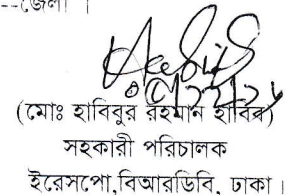 --জেলা ।
(মোঃ হাবিবুর রহমান হাবিব)
সহকারী পরিচালক
ইরেসপো,বিআরডিবি, ঢাকা।